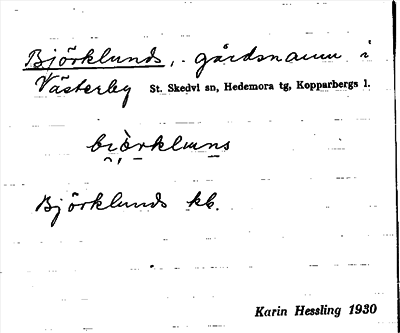 Björklunds, gårdsnamn i
Västerby St. Skedvi sn, Hedemora tg, Kopparbergs l.
biòrkluns
Björklunds kb.
Karin Hessling 1930